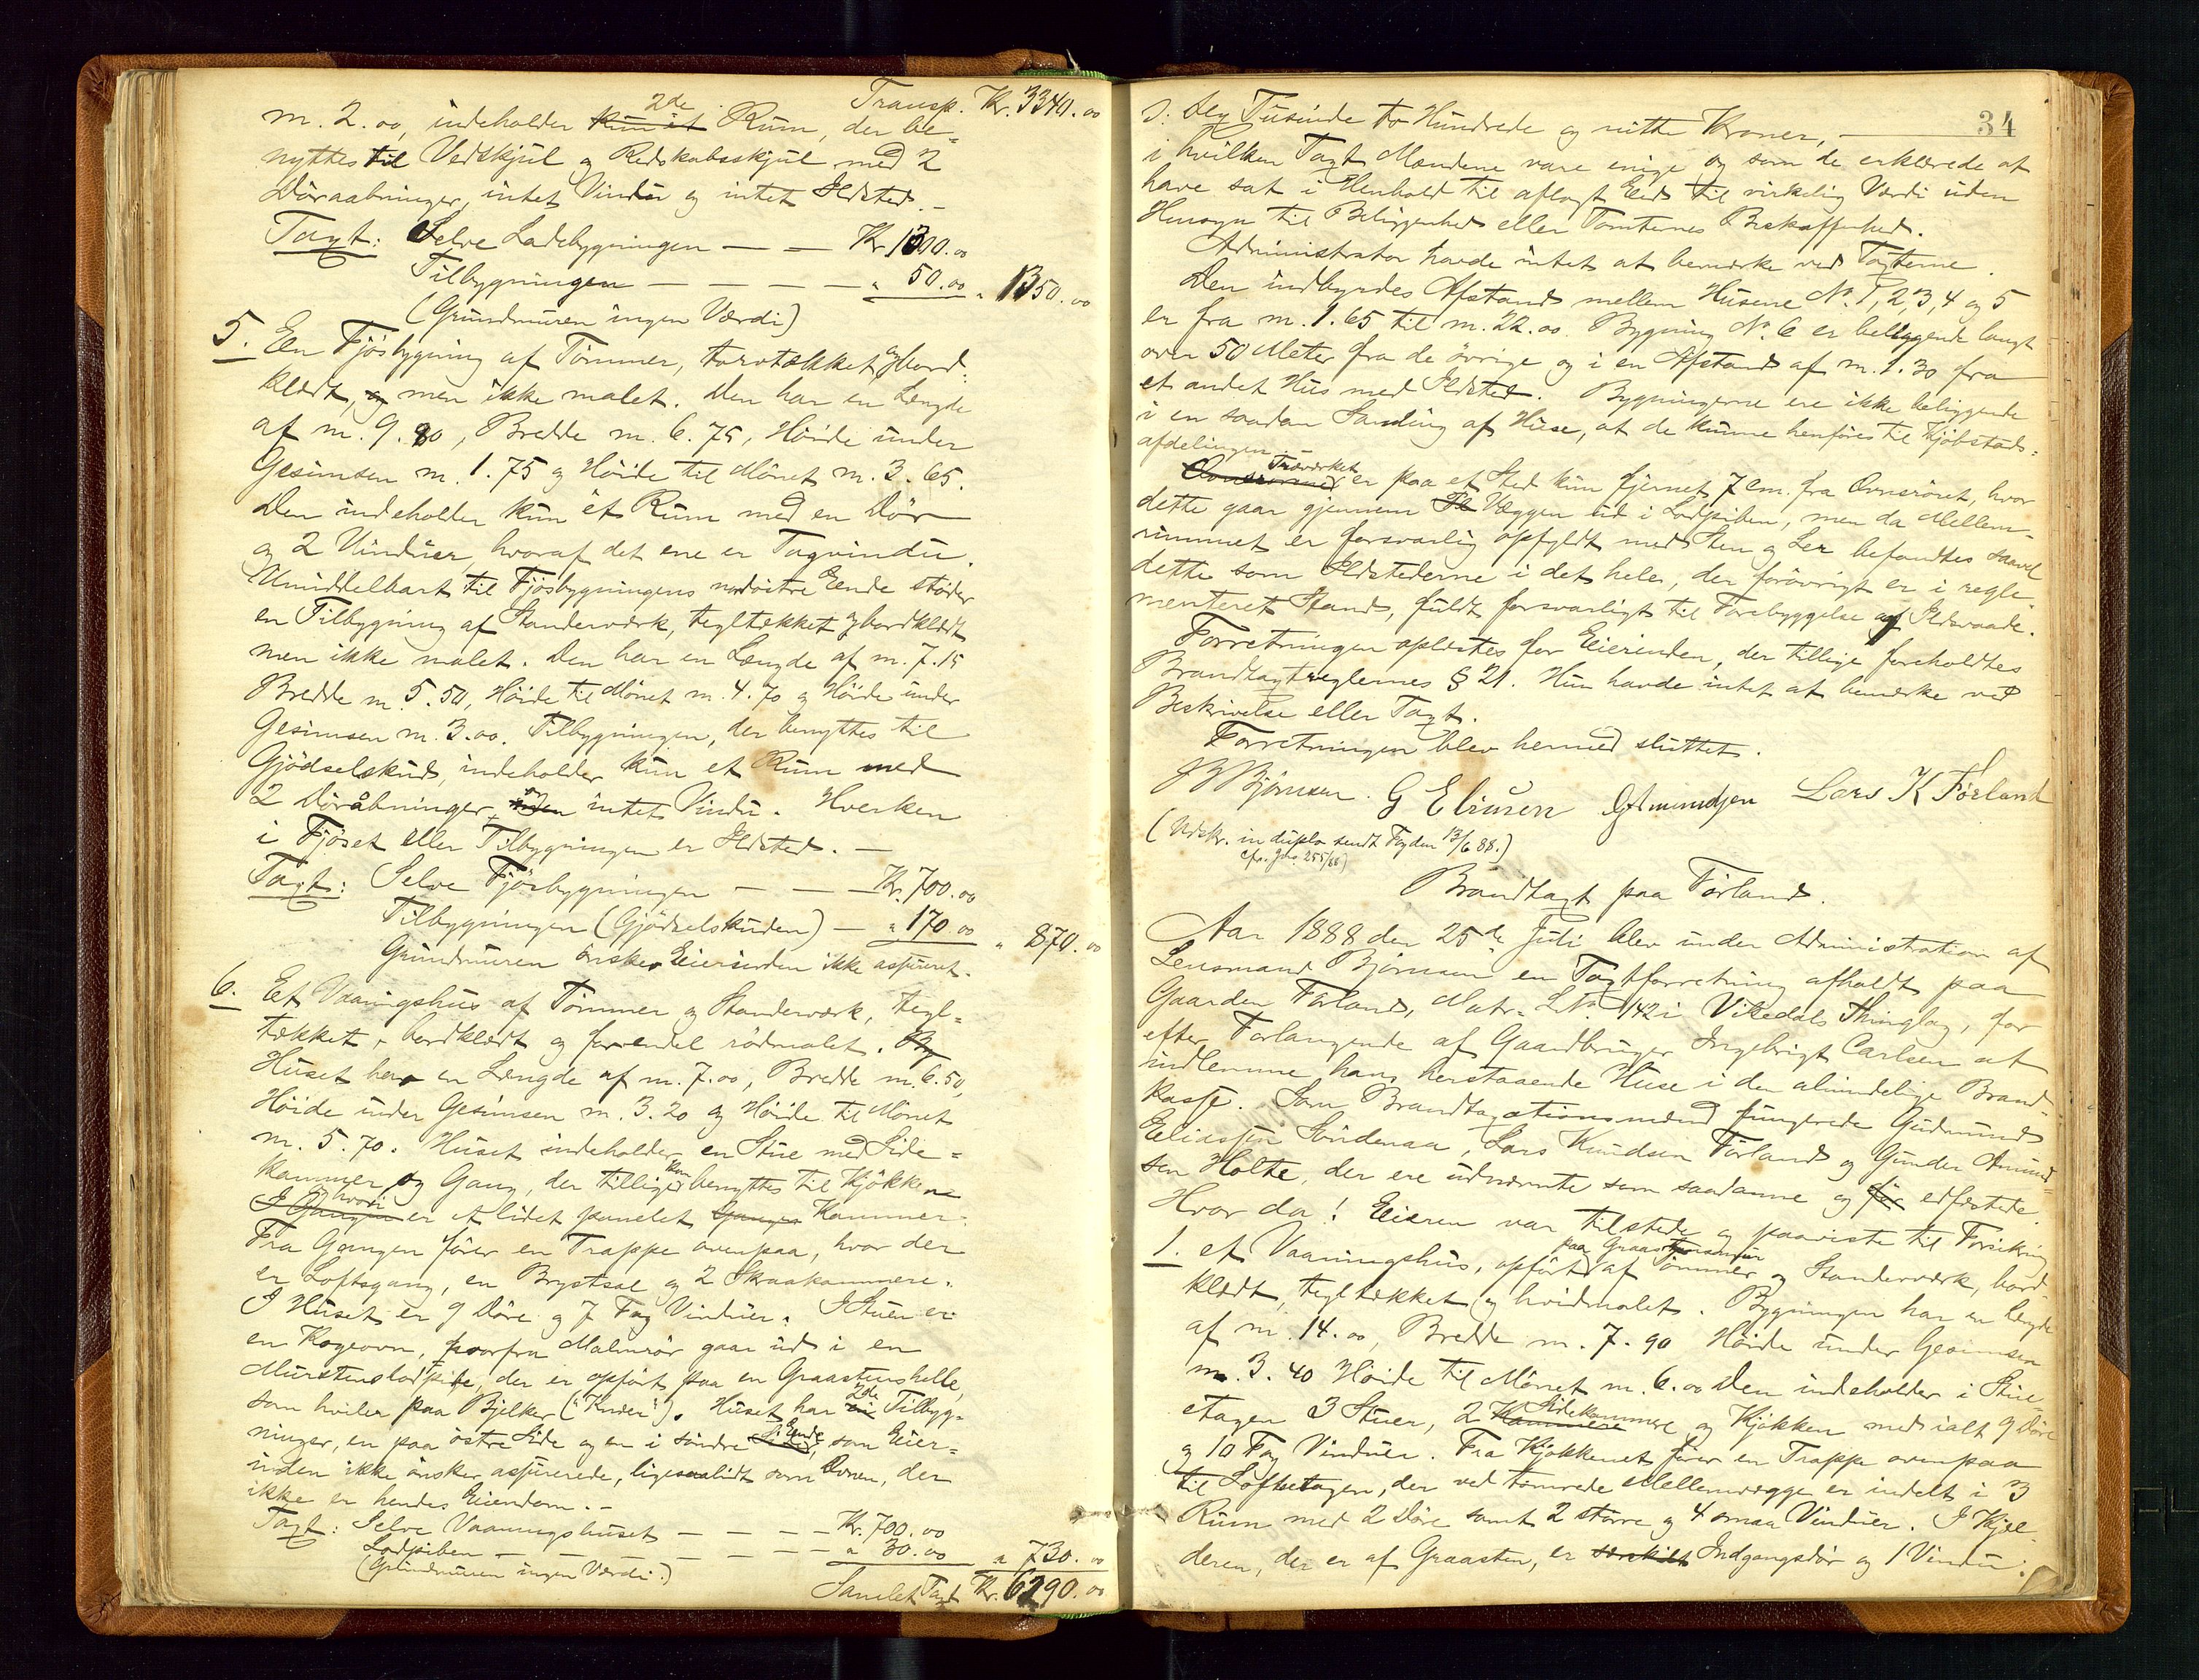 Transp. Kr. 3340.00
m. 2.00, indeholder kun ét 2de Rum, der be-
nyttes til Vedskjul og Redskabsskjul med 2
Döraabninger, intet Vindu og intet Ildsted.-
Taxt: Selve Ladebygningen — — Kr 1300.00
Tilbygningen — — — — „ 50.00 „ 1350.00
(Grundmuren ingen Værdi)
5. Een Fjösbygning af Tömmer, torvtækket og bord-
klædt, og men ikke malet. Den har en Længde
af m. 9.80, Bredde m. 6.75, Höide under
Gesimsen m. 1.75 og Höide til Mönet m. 3.65.
Den indeholder kun ét Rum med en Dör
og 2 Vinduer, hvoraf det ene er Tagvindu.
Umiddelbart til Fjösbygningens nordöstre Ende stöder
en Tilbygning af Standerværk, tegltækket og bordklædt
men ikke malet. Den har en Længde af m. 7.15
Bredde m. 5.50, Höide til Mönet m. 4.70 og Höide under
Gesimsen m. 3.00. Tilbygningen, der benyttes til
Gjödselskud, indeholder kun et Rum med
2 Döråbninger, og intet Vindu. Hverken
i Fjöset eller Tilbygningen er Ildsted. —
Taxt: Selve Fjösbygningen — — — Kr. 700.00
Tilbygningen (Gjödselskuden) — „ 170.00 „ 870.00
Grundmuren önsker Eierinden ikke assureret.
6. Et Vaaningshus af Tömmer og Standerværk, tegl-
tækket, bordklædt og for endel rödmalet. By
Huset har en Længde af m. 7.00, Bredde m. 6.50,
Höide under Gesimsen m. 3.20 og Höide til Mönet
m. 5.70. Huset indeholder en Stue med Side-
kammer og Gang, der tillige kan benyttes til Kjökken
I Gangen og hvori er et lidet panelet Ganger Kammer.
Fra Gangen förer en Trappe ovenpaa, hvor der
er Loftsgang, en Brystsal og 2 Skraakammere.
I Huset er 9 Döre og 7 Fag Vinduer. I Stuen er
en Kogeovn, hvorfra Malmrör gaar ud i en
Murstenslodpibe, der er opfört paa en Graastenshelle,
som hviler paa Bjelker ("Knuer"). Huset har en 2de Tilbyg-
ninger, en paa östre Side og en i söndre Side Ende, som Eier-
inden ikke önsker assurerede, ligesaalidt som Ovnen, der
ikke er hendes Eiendom.-
Taxt: Selve Vaaningshuset — — — — Kr. 700.00
Lodpiben — — — — — — „ 30.00 „ 730.00
(Grundmuren ingen Værdi.)
Samlet Taxt Kr. 6290.00
34
ɔ: Sex Tusinde to Hundrede og nitti Kroner, —
i hvilken Taxt Mændene vare enige og som de erklærede at
have sat i Henhold til aflagt Eed til virkelig Værdi uden
Hensyn til Beliggenhed eller Tomternes Beskaffenhed.
Administrator havde intet at bemærke ved Taxterne.
Den indbyrdes Afstand mellem Husene No. 1, 2, 3, 4 og 5
er fra m. 1.65 til m. 22.00. Bygning No. 6 er beliggende langt
over 50 Meter fra de övrige og i en Afstand af m. 1.30 fra
et andet Hus med Ildsted. Bygningerne ere ikke beliggende
i en saadan Samling af Huse, at de kunne henföres til Kjöbstads-
afdelingen. —
Træværket er paa et Sted kun fjernet 7 cm. fra Ovnsröret, hvor
dette gaar gjennem Væggen ud i Lodpiben, men da Mellem-
rummet er forsvarlig opfyldt med Sten og Ler befandtes saavel
dette som Ildstederne i det hele, der forövrigt er i regle-
menteret Stand, fuldt forsvarligt til Forebyggelse af Ildsvaade.
Forretningen oplæstes for Eierinden, der tillige foreholdtes
Brandtaxtreglernes § 21. Hun havde intet at bemærke ved
Beskrivelse eller Taxt.
Forretningen blev hermed sluttet.
Bjørnsen G Eliasen GAmundsen Lars K Førland
(Udskr. in duplo sendt Fogden 13/6 88.)
cfr. Jno. 255/88)
Brandtaxt paa Förland.
Aar 1888 den 25de Juli blev under Administration af
Lensmand Björnsen en Taxtforretning afholdt paa
Gaarden Förland, Matr. L. No. 142 i Vikedals Thinglag, for
efter Forlangende af Gaardbruger Ingebrigt Carlsen at
indlemme hans herstaaende Huse i den almindelige Brand-
kasse. Som Brandtaxationsmænd fungerede Gudmund
Eliassen Söndenaa, Lars Knudsen Förland og Gunder Amund-
sen Holte, der ere udnævnte som saadanne og för edfæstede.
Hvor da! Eieren var tilstede og paaviste til Forsikring
1. et Vaaningshus, opfört paa Graastensmur af Tömmer og Standerværk, bord-
klædt, tegltækket og hvidmalet. Bygningen har en Lengde
af m. 14.00, Bredde m. 7.90 Höide under Gesimsen
m. 3.40 Höide til Mönet m. 6.00 Den indeholder i Stue-
etagen 3 Stuer, 2 Kammere Sidekammere og Kjökken med ialt 9 Döre
og 10 Fag Vinduer. Fra Kjökkenet förer en Trappe ovenpaa
til Loftsetagen, der ved tömrede Mellemvægge er indelt i 3
Rum med 2 Döre samt 2 större og 4 smaa Vinduer. I Kjel-
deren, der er af Graasten, er særskilt Indgangsdör og 1 Vindu.